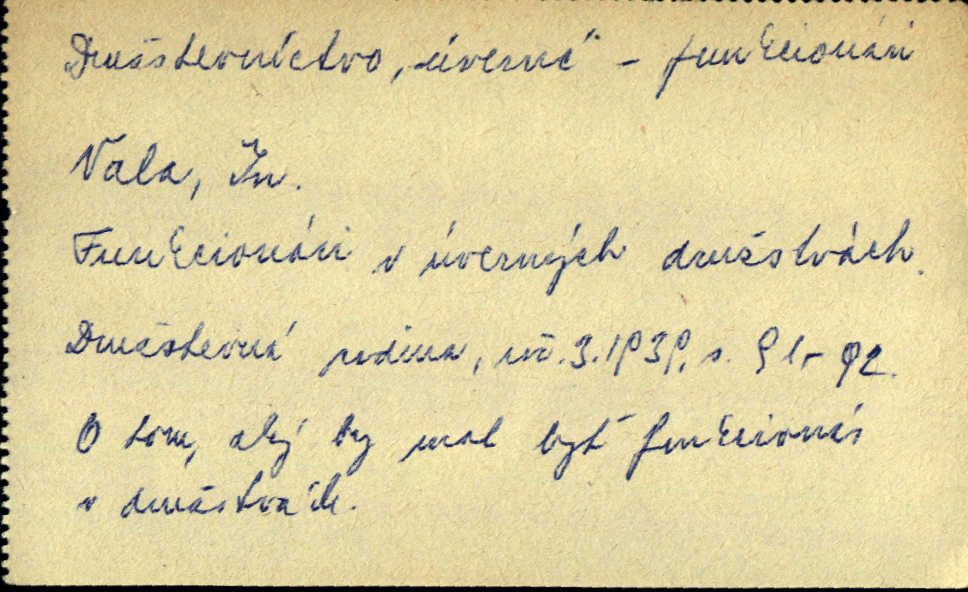 Družstevníctvo, úverné" – funkcionári
Vala, In.
Funkcionári v úverných družstvách.
Družstevná rodina, roč. 3. 1939, s. 91.–92.
O tom, aký by mal byť funkcionár
v družstvách.